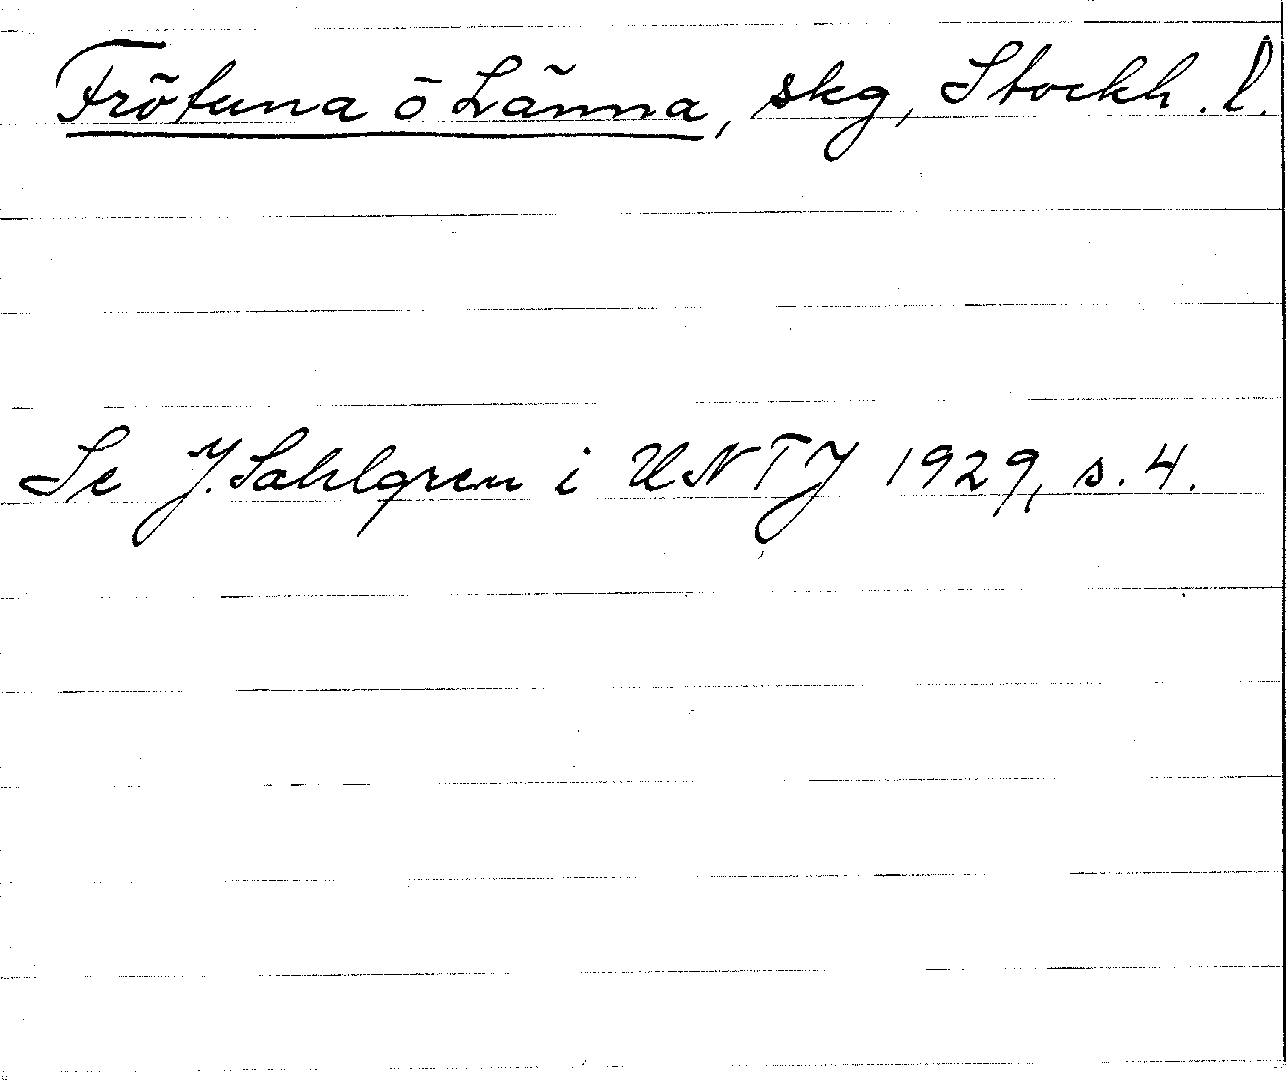 Frötuna o Länna, skg, Stockh. l.
Se J. Sahlgren i UNTJ 1929, s. 4.